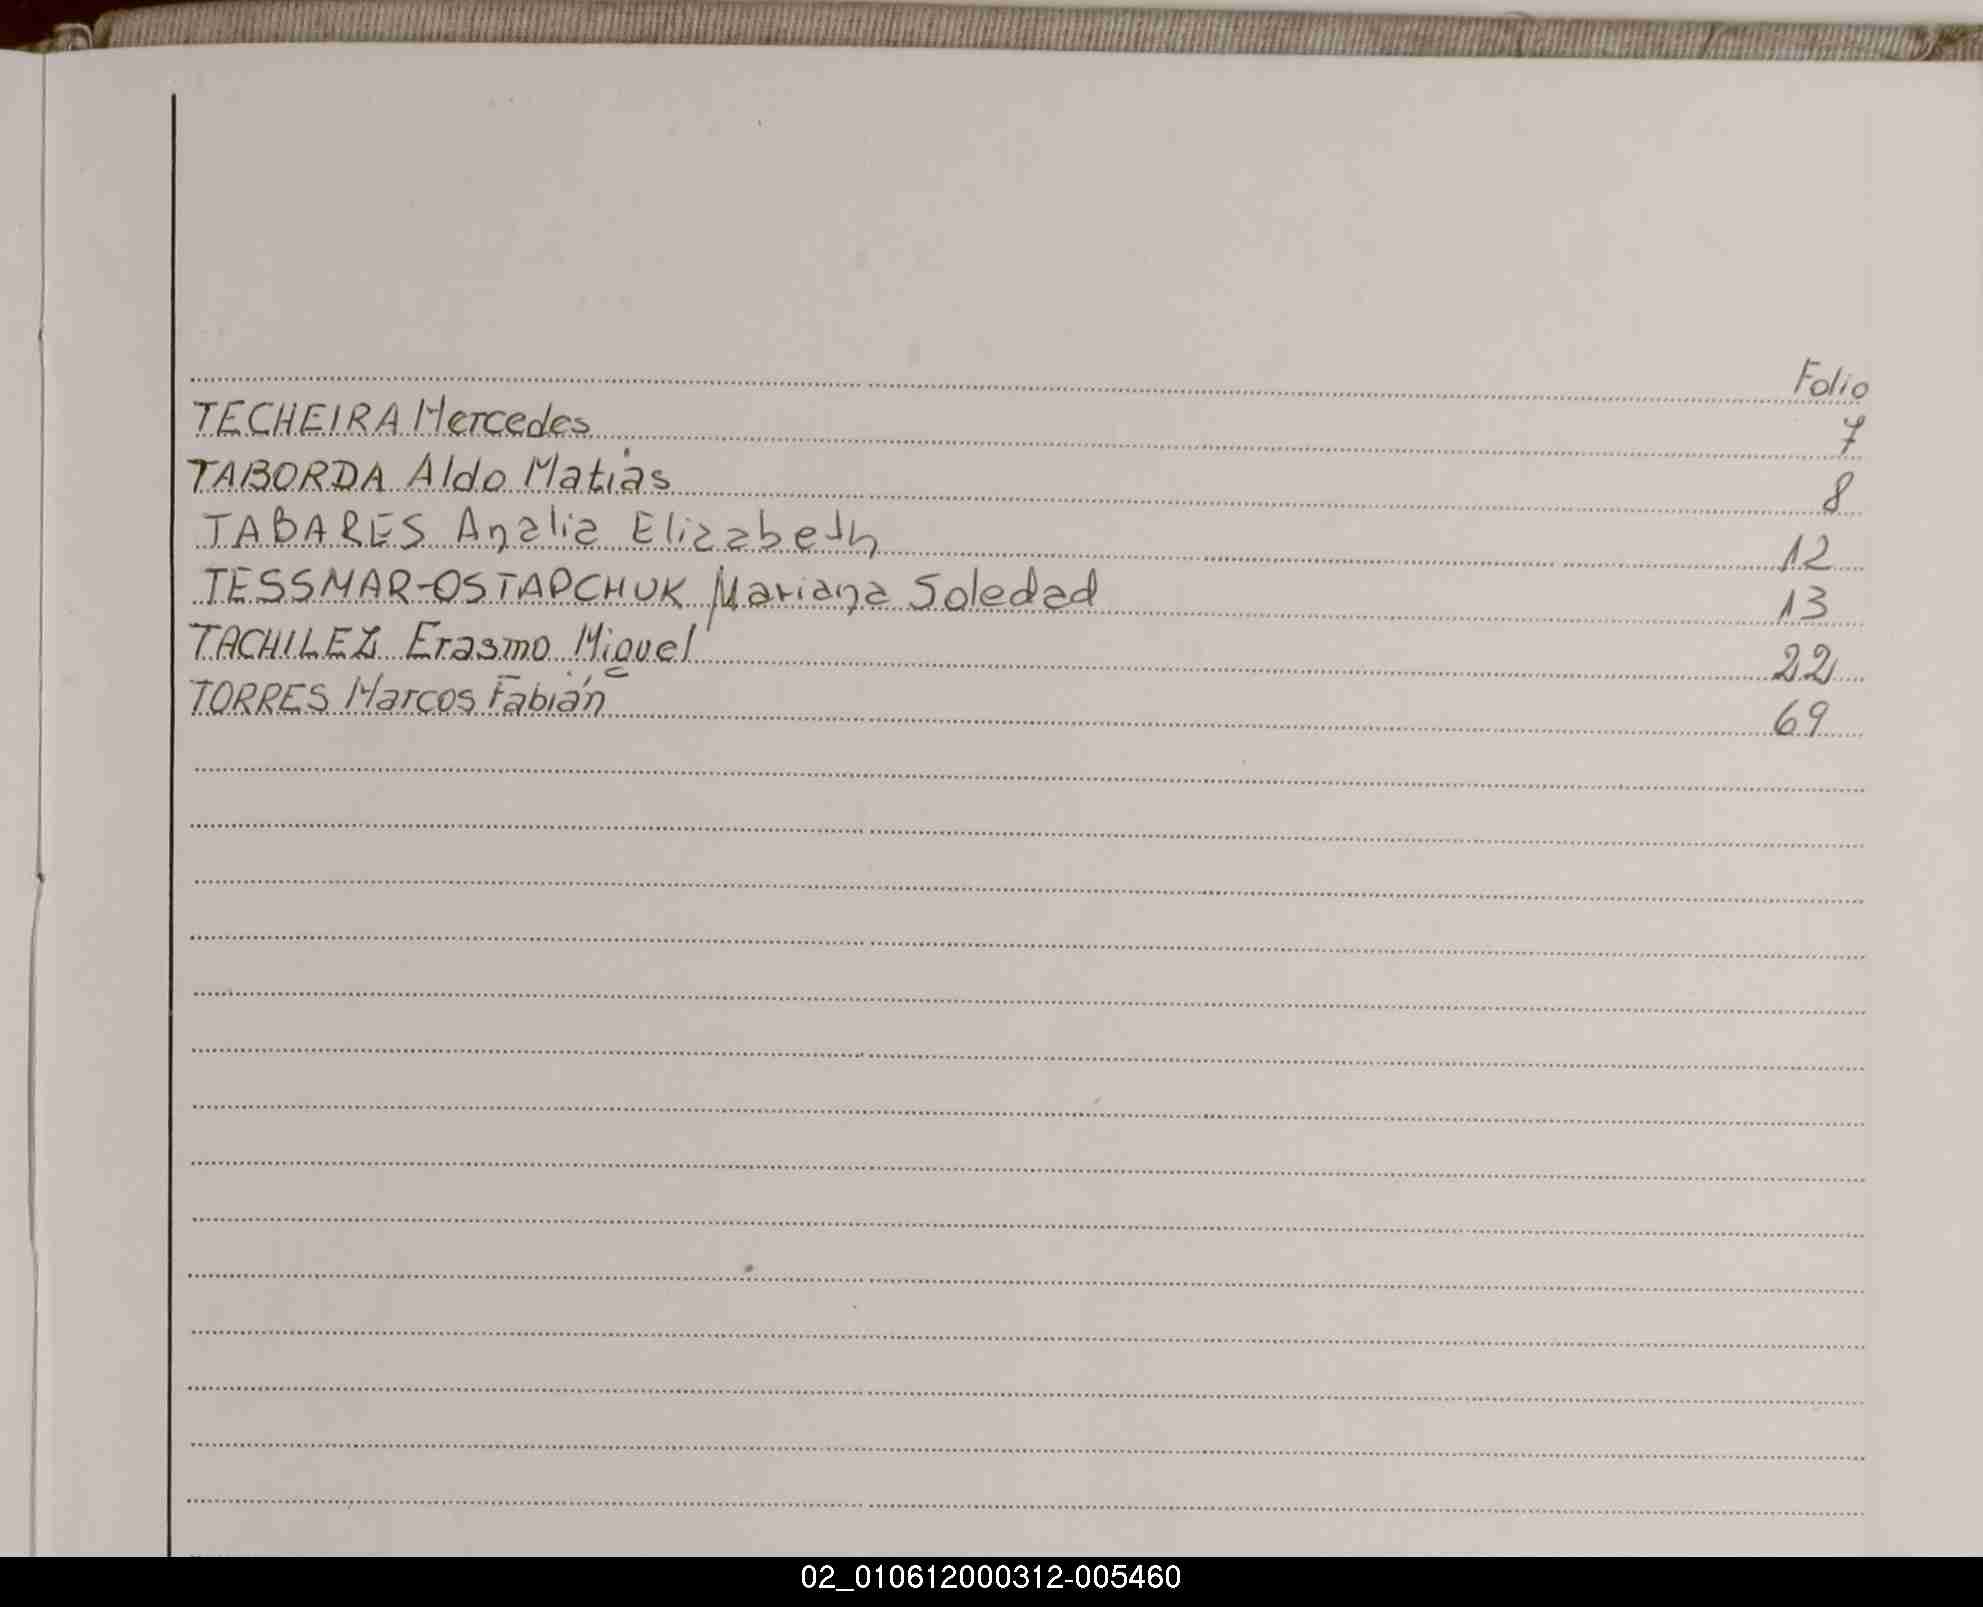 Folio
TECHEIRA Mercedes 7
TABORDA Aldo Matías 8
TABARES Analia Elizabeth 12
TESSMAR-OSTAPCHUK Mariana Soledad 13
TACHILEZ Erasmo Miguel 22
TORRES Marcos Fabián 69
02_010612000312-005460